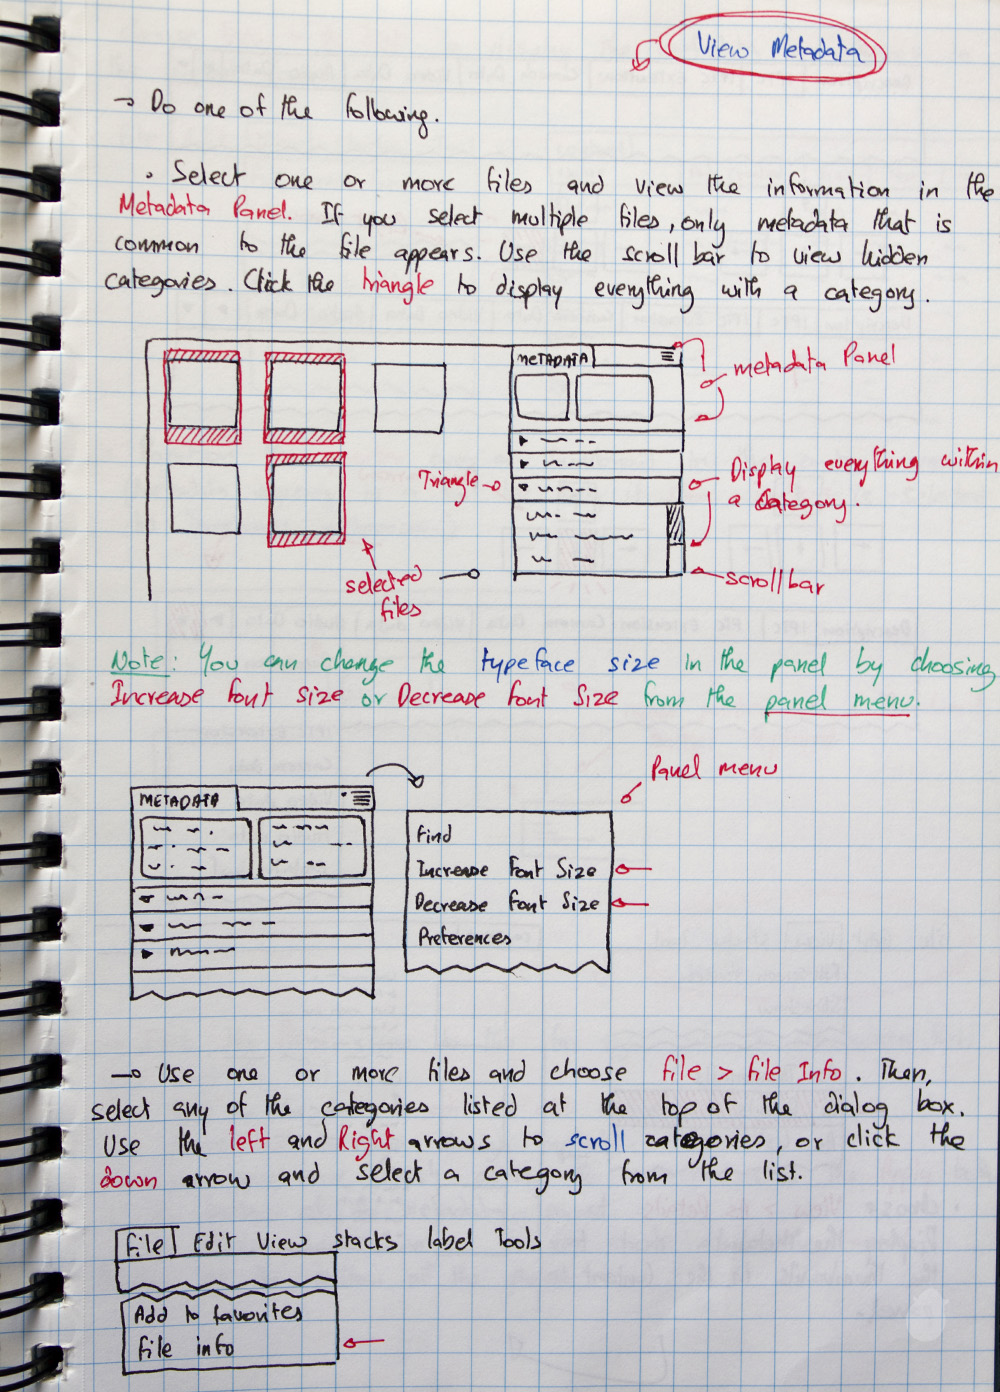 View Metadata
→ Do one of the following.
. Select one or more files and view the information in the
Metadata Panel. If you select multiple files, only metadata that is
common to the file appears. Use the scroll bar to view hidden
categories. Click the triangle to display everything with a category.
METADATA
metadata Panel
Triangle
Display everything within
a category.
selected
files
scroll bar
Note: You can change the typeface size in the panel by choosing
Increase font size or Decrease font Size from the panel menu.
Panel menu
METADATA
Find
Increase Font Size
Decrease Font Size
Preferences
→ Use one or more files and choose file > file Info. Then,
select any of the categories listed at the top of the dialog box.
Use the left and Right arrows to scroll categories, or click the
down arrow and select a category from the list.
File Edit View stacks label Tools
Add to favorites
file info